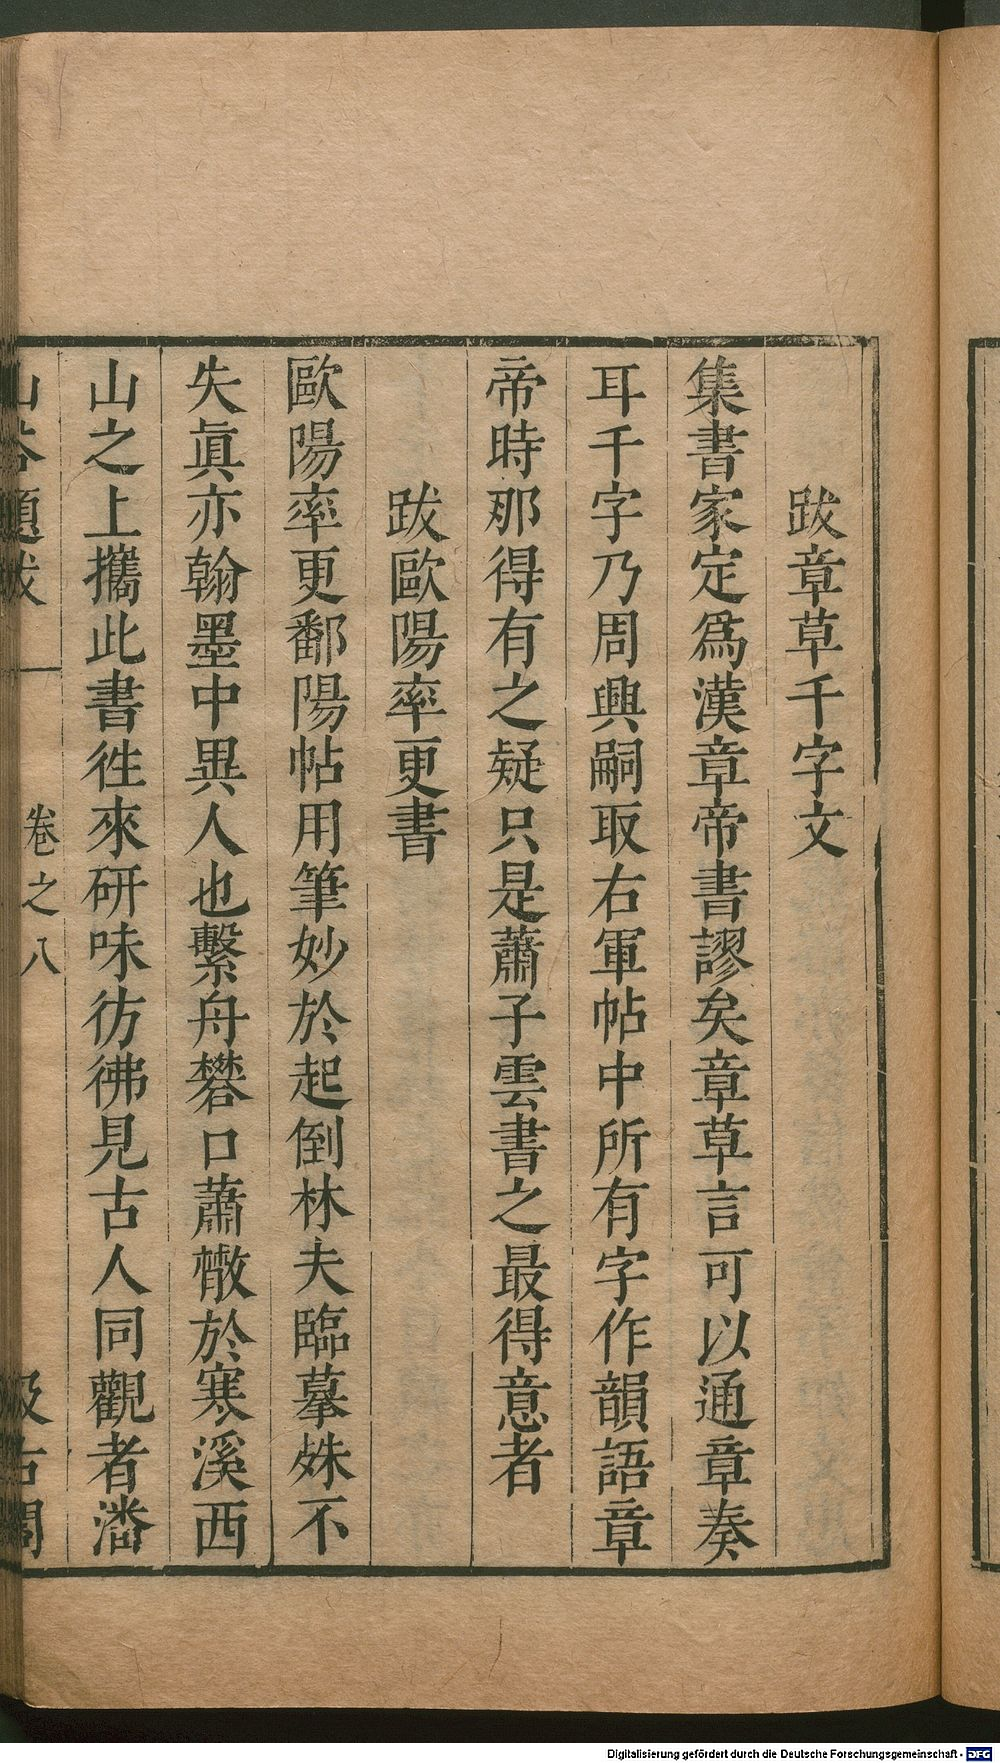 跋章草千字文
集書家定爲漢章帝書謬矣章草言可以通章奏
耳千字乃周興嗣取右軍帖中所有字作韻語章
帝時那得有之疑只是蕭子雲書之最得意者
跋歐陽率更書
歐陽率更鄱陽帖用筆妙於起倒林夫臨摹殊不
失眞亦翰墨中異人也繫舟樊口蕭散於寒溪西
山之上攜此書徃來研味彷彿見古人同觀者潘
山谷題跋 卷之八 汲古閣
Digitalisierung gefördert durch die Deutsche Forschungsgemeinschaft - DFG